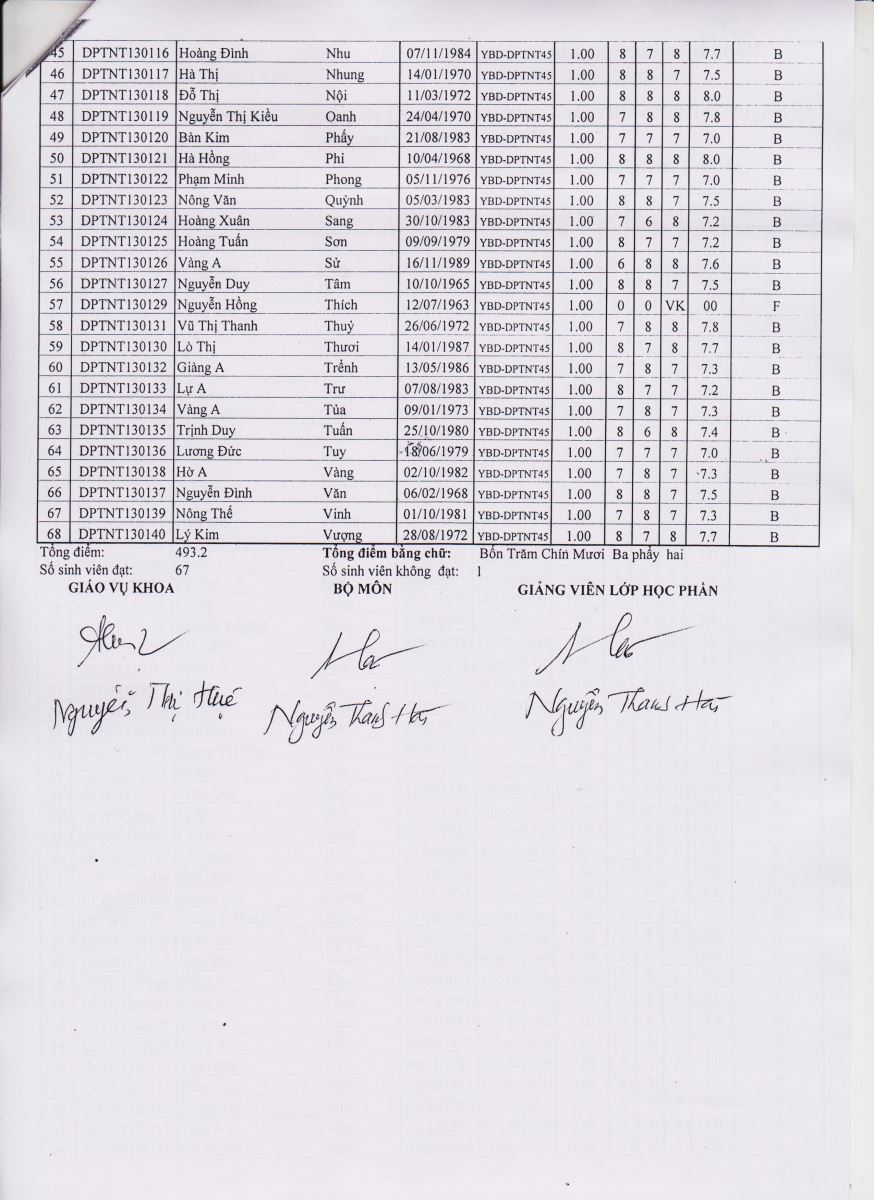 45 DPTNT130116 Hoàng Đình Nhu 07/11/1984 YBD-DPTNT45 1.00 8 7 8 7.7 B
46 DPTNT130117 Hà Thị Nhung 14/01/1970 YBD-DPTNT45 1.00 8 8 7 7.5 B
47 DPTNT130118 Đỗ Thị Nội 11/03/1972 YBD-DPTNT45 1.00 8 8 8 8.0 B
48 DPTNT130119 Nguyễn Thị Kiều Oanh 24/04/1970 YBD-DPTNT45 1.00 7 8 8 7.8 B
49 DPTNT130120 Bàn Kim Phấy 21/08/1983 YBD-DPTNT45 1.00 7 7 7 7.0 B
50 DPTNT130121 Hà Hồng Phi 10/04/1968 YBD-DPTNT45 1.00 8 8 8 8.0 B
51 DPTNT130122 Phạm Minh Phong 05/11/1976 YBD-DPTNT45 1.00 7 7 7 7.0 B
52 DPTNT130123 Nông Văn Quỳnh 05/03/1983 YBD-DPTNT45 1.00 8 8 7 7.5 B
53 DPTNT130124 Hoàng Xuân Sang 30/10/1983 YBD-DPTNT45 1.00 7 6 8 7.2 B
54 DPTNT130125 Hoàng Tuấn Sơn 09/09/1979 YBD-DPTNT45 1.00 8 7 7 7.2 B
55 DPTNT130126 Vàng A Sử 16/11/1989 YBD-DPTNT45 1.00 6 8 8 7.6 B
56 DPTNT130127 Nguyễn Duy Tâm 10/10/1965 YBD-DPTNT45 1.00 8 8 7 7.5 B
57 DPTNT130129 Nguyễn Hồng Thích 12/07/1963 YBD-DPTNT45 1.00 0 0 VK 00 F
58 DPTNT130131 Vũ Thị Thanh Thuỷ 26/06/1972 YBD-DPTNT45 1.00 7 8 8 7.8 B
59 DPTNT130130 Lò Thị Thươi 14/01/1987 YBD-DPTNT45 1.00 8 7 8 7.7 B
60 DPTNT130132 Giàng A Trểnh 13/05/1986 YBD-DPTNT45 1.00 7 8 7 7.3 B
61 DPTNT130133 Lự A Trư 07/08/1983 YBD-DPTNT45 1.00 8 7 7 7.2 B
62 DPTNT130134 Vàng A Tủa 09/01/1973 YBD-DPTNT45 1.00 7 8 7 7.3 B
63 DPTNT130135 Trịnh Duy Tuấn 25/10/1980 YBD-DPTNT45 1.00 8 6 8 7.4 B
64 DPTNT130136 Lương Đức Tuy 18/06/1979 YBD-DPTNT45 1.00 7 7 7 7.0 B
65 DPTNT130138 Hờ A Vàng 02/10/1982 YBD-DPTNT45 1.00 7 8 7 7.3 B
66 DPTNT130137 Nguyễn Đình Văn 06/02/1968 YBD-DPTNT45 1.00 8 8 7 7.5 B
67 DPTNT130139 Nông Thế Vinh 01/10/1981 YBD-DPTNT45 1.00 7 8 7 7.3 B
68 DPTNT130140 Lý Kim Vượng 28/08/1972 YBD-DPTNT45 1.00 8 7 8 7.7 B
Tổng điểm: 493.2 Tổng điểm bằng chữ: Bốn Trăm Chín Mươi Ba phẩy hai
Số sinh viên đạt: 67 Số sinh viên không đạt: 1
GIÁO VỤ KHOA BỘ MÔN GIẢNG VIÊN LỚP HỌC PHẦN
Nguyễn Thị Huệ Nguyễn Thanh Hải Nguyễn Thanh Hải